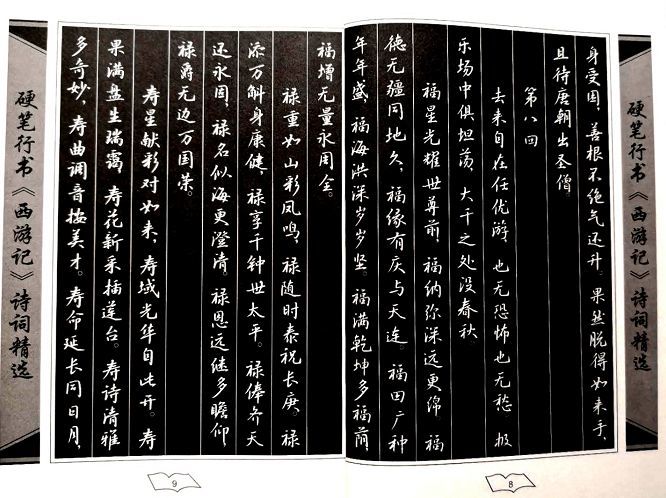 硬笔行书《西游记》诗词精选
身受困，善根不绝气还升。果然脱得如来手，
且待唐朝出圣僧。
第八回
去来自在任优游，也无恐怖也无愁。极
乐场中俱坦荡，大千之处没春秋。
福星光耀世尊前，福纳弥深远更绵。福
德无疆同地久，福缘有庆与天连。福田广种
年年盛，福海洪深岁岁坚。福满乾坤多福荫，
8
福增无量永周全。
禄重如山彩凤鸣，禄随时泰祝长庚。禄
添万斛身康健，禄享千钟世太平。禄俸齐天
还永固，禄名似海更澄清。禄恩远继多瞻仰，
禄爵无边万国荣。
寿星献彩对如来，寿域光华自此开。寿
果满盘生瑞霭，寿花新采插莲台。寿诗清雅
多奇妙，寿曲调音按美才。寿命延长同日月，
硬笔行书《西游记》诗词精选
9